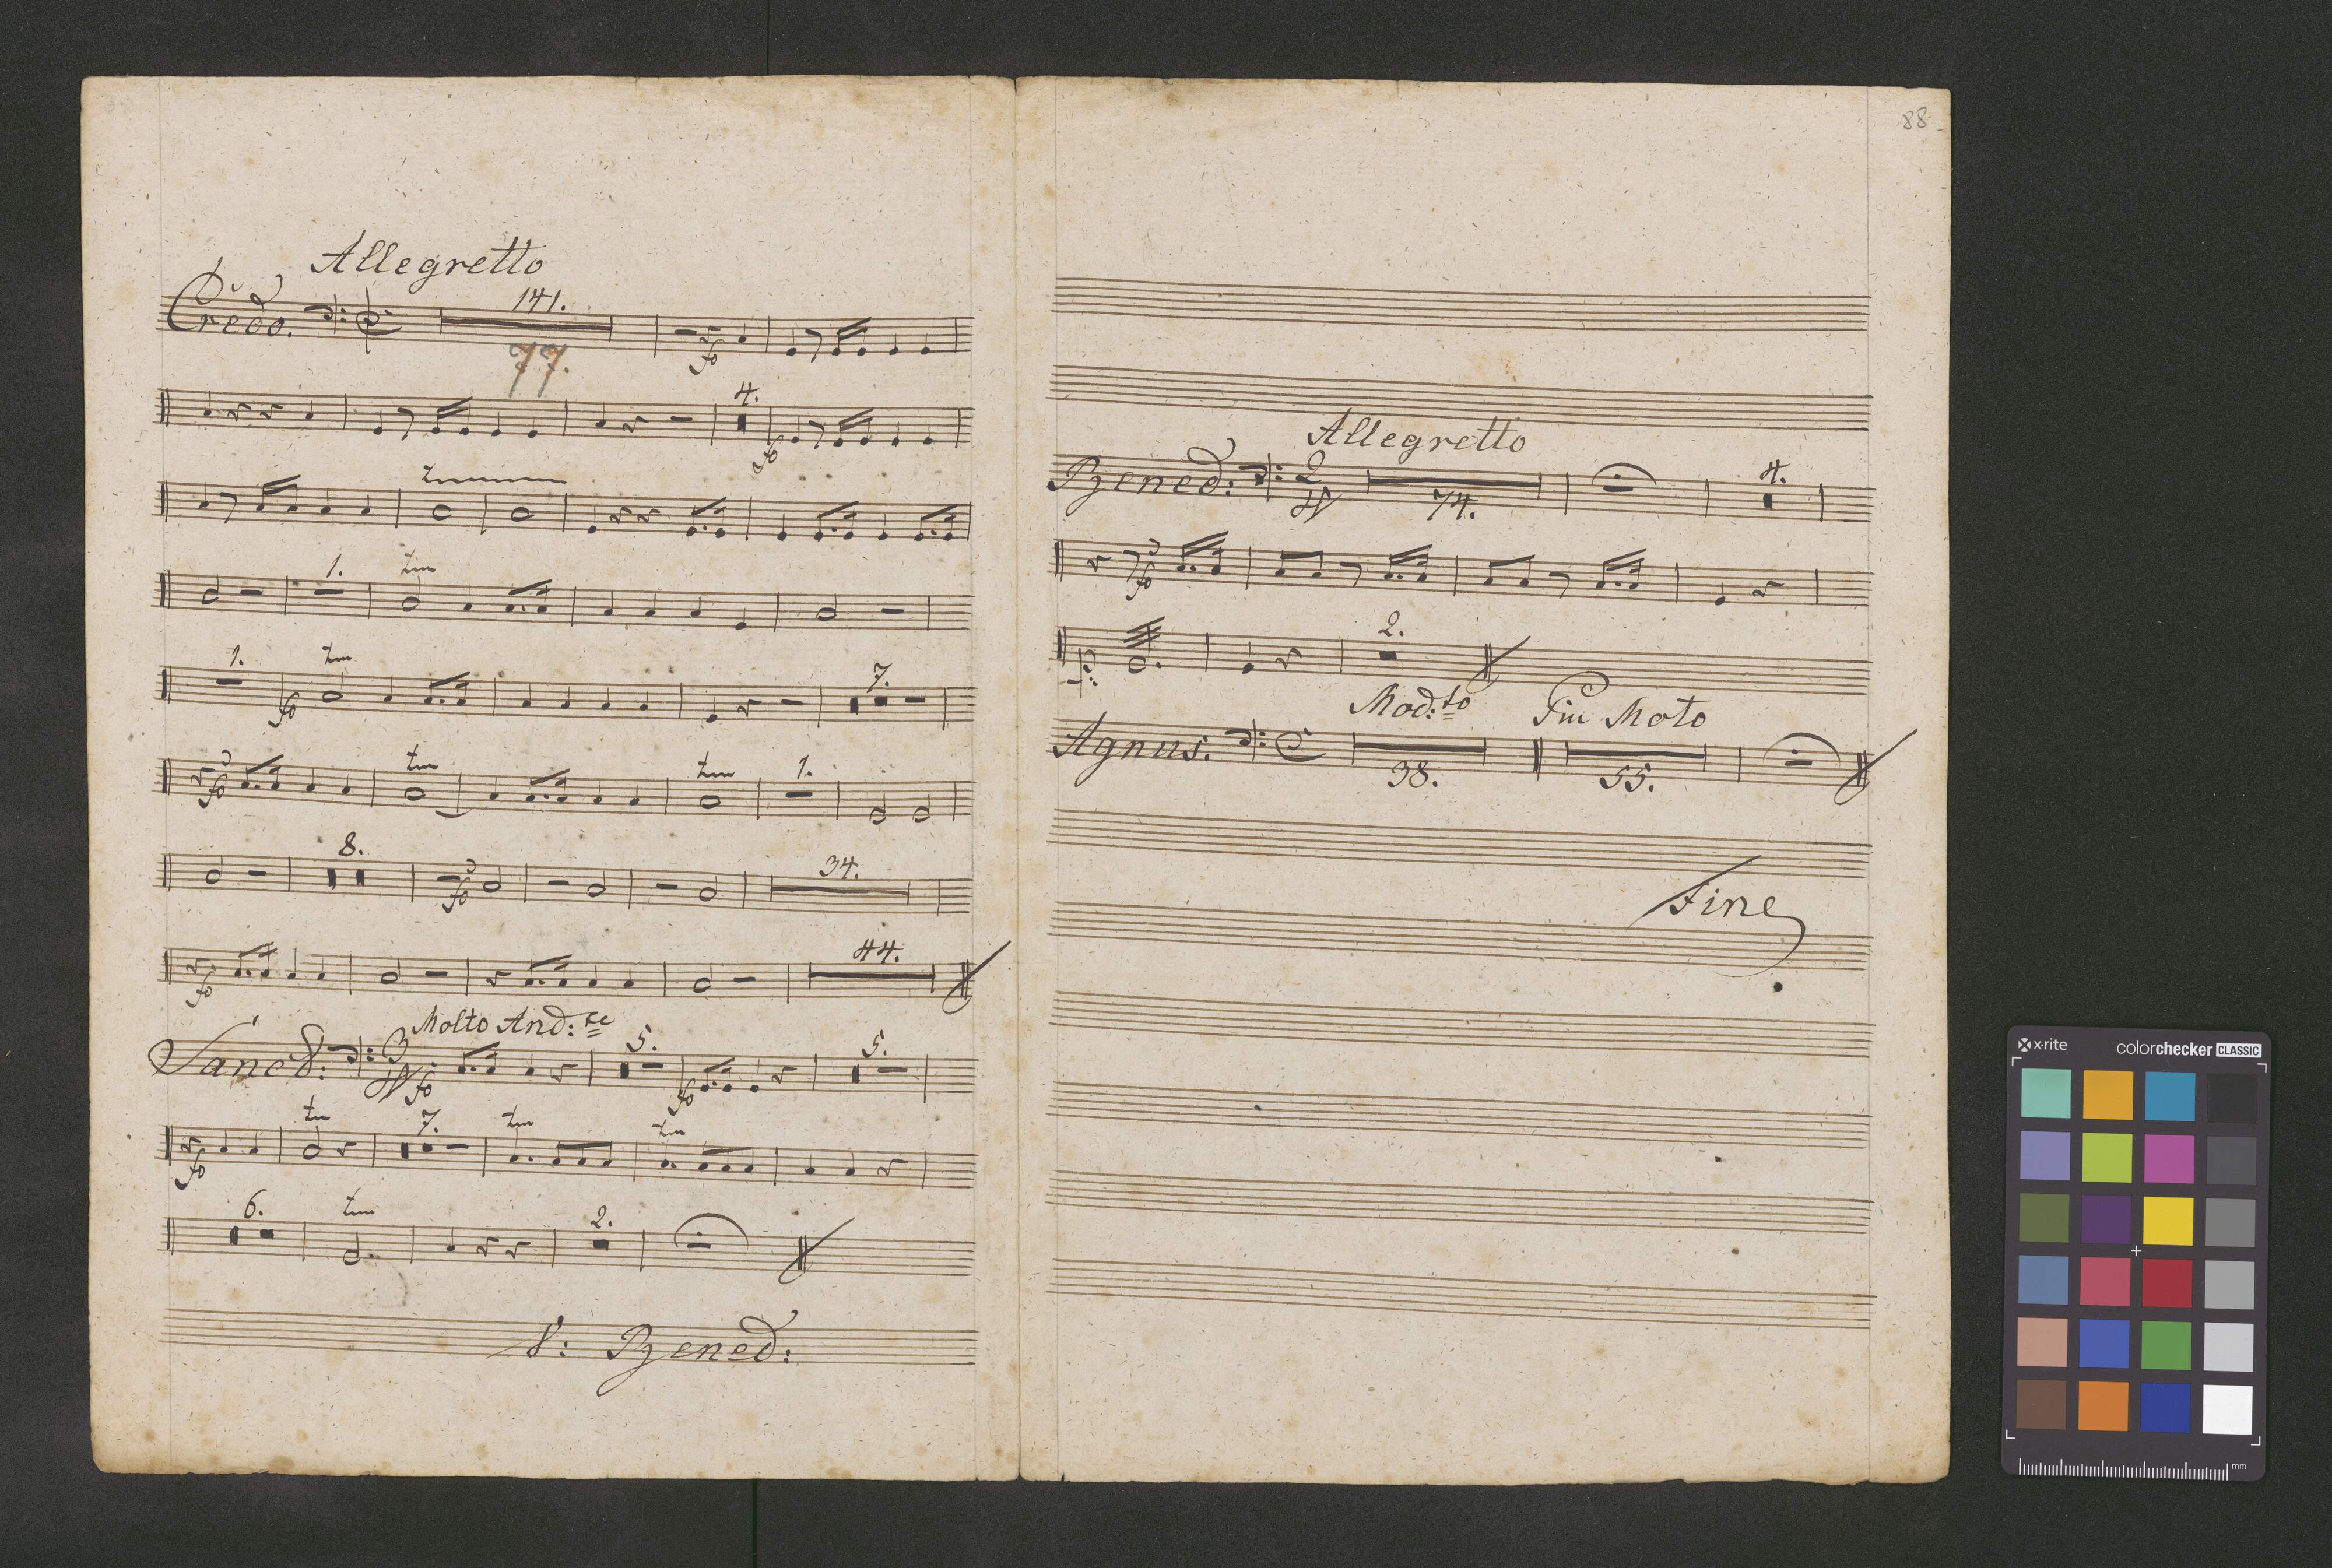 Allegretto
Credo.
141.
77.
fo
4.
fo
tm
1.
tm
1.
tm
fo
7.
fo
tm
tm
1.
8.
fo
34.
fo
44.
Molto And:te
Sanct:
3/4
fo
5.
fo
5.
fo
tm
7.
tm
tm
6.
tm
2.
Bened:
88
Allegretto
Bened:
2/4
74.
4.
fo
2.
Mod:to
Piu Moto
Agnus:
38.
55.
Fine
x-rite
colorchecker CLASSIC
mm